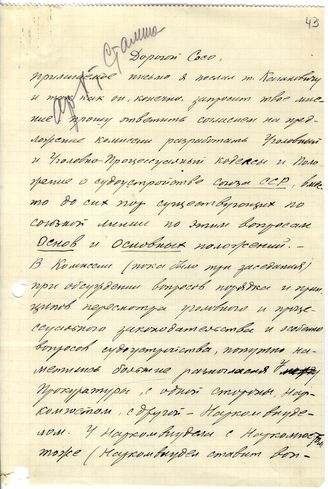 43
арх. т. Сталина
Дорогой Сосо,
Прилагаемое письмо я послал т. Кагановичу
и так как он, конечно, запросит твое мне-
ние прошу ответить согласием на пред-
ложение комиссии разработать Уголовный
и Уголовно-Процессуальный Кодексы и Поло-
жение о судоустройстве союза ССР, вмес-
то до сих пор существующих по
союзной линии по этим вопросам
Основ и Основных положений. –
В Комиссии (пока было три заседания)
при обсуждении вопросов порядка и прин-
ципов пересмотра уголовного и процес-
ссуального законодательства и особенно
вопросов судоустройства, попутно на-
метились большие разногласия у
Прокуратуры, с одной стороны, Нар-
комюстом, с другой – Наркомвнуде-
лом. У Наркомвнудела с Наркомюстом
тоже (Наркомвнудел ставит воп-